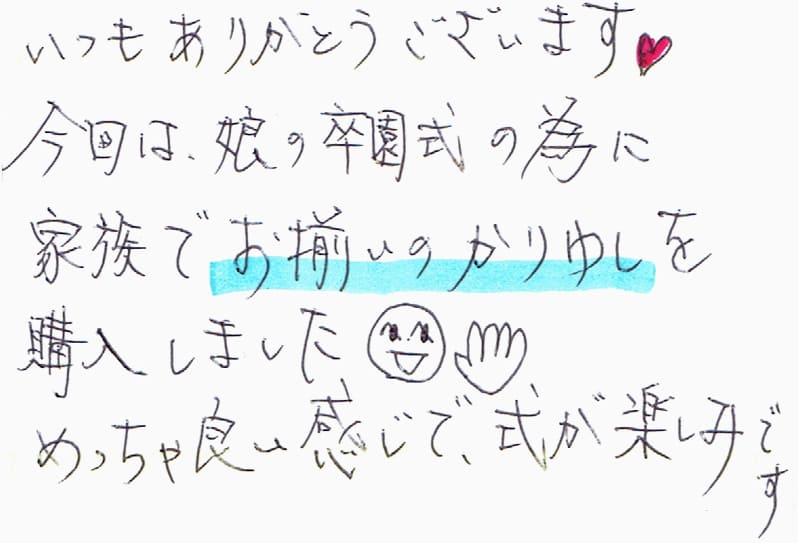 いつもありがとうございます
今回は、娘の卒園式の為に
家族でお揃いのかりゆしを
購入しました
めっちゃ良い感じで、式が楽しみです